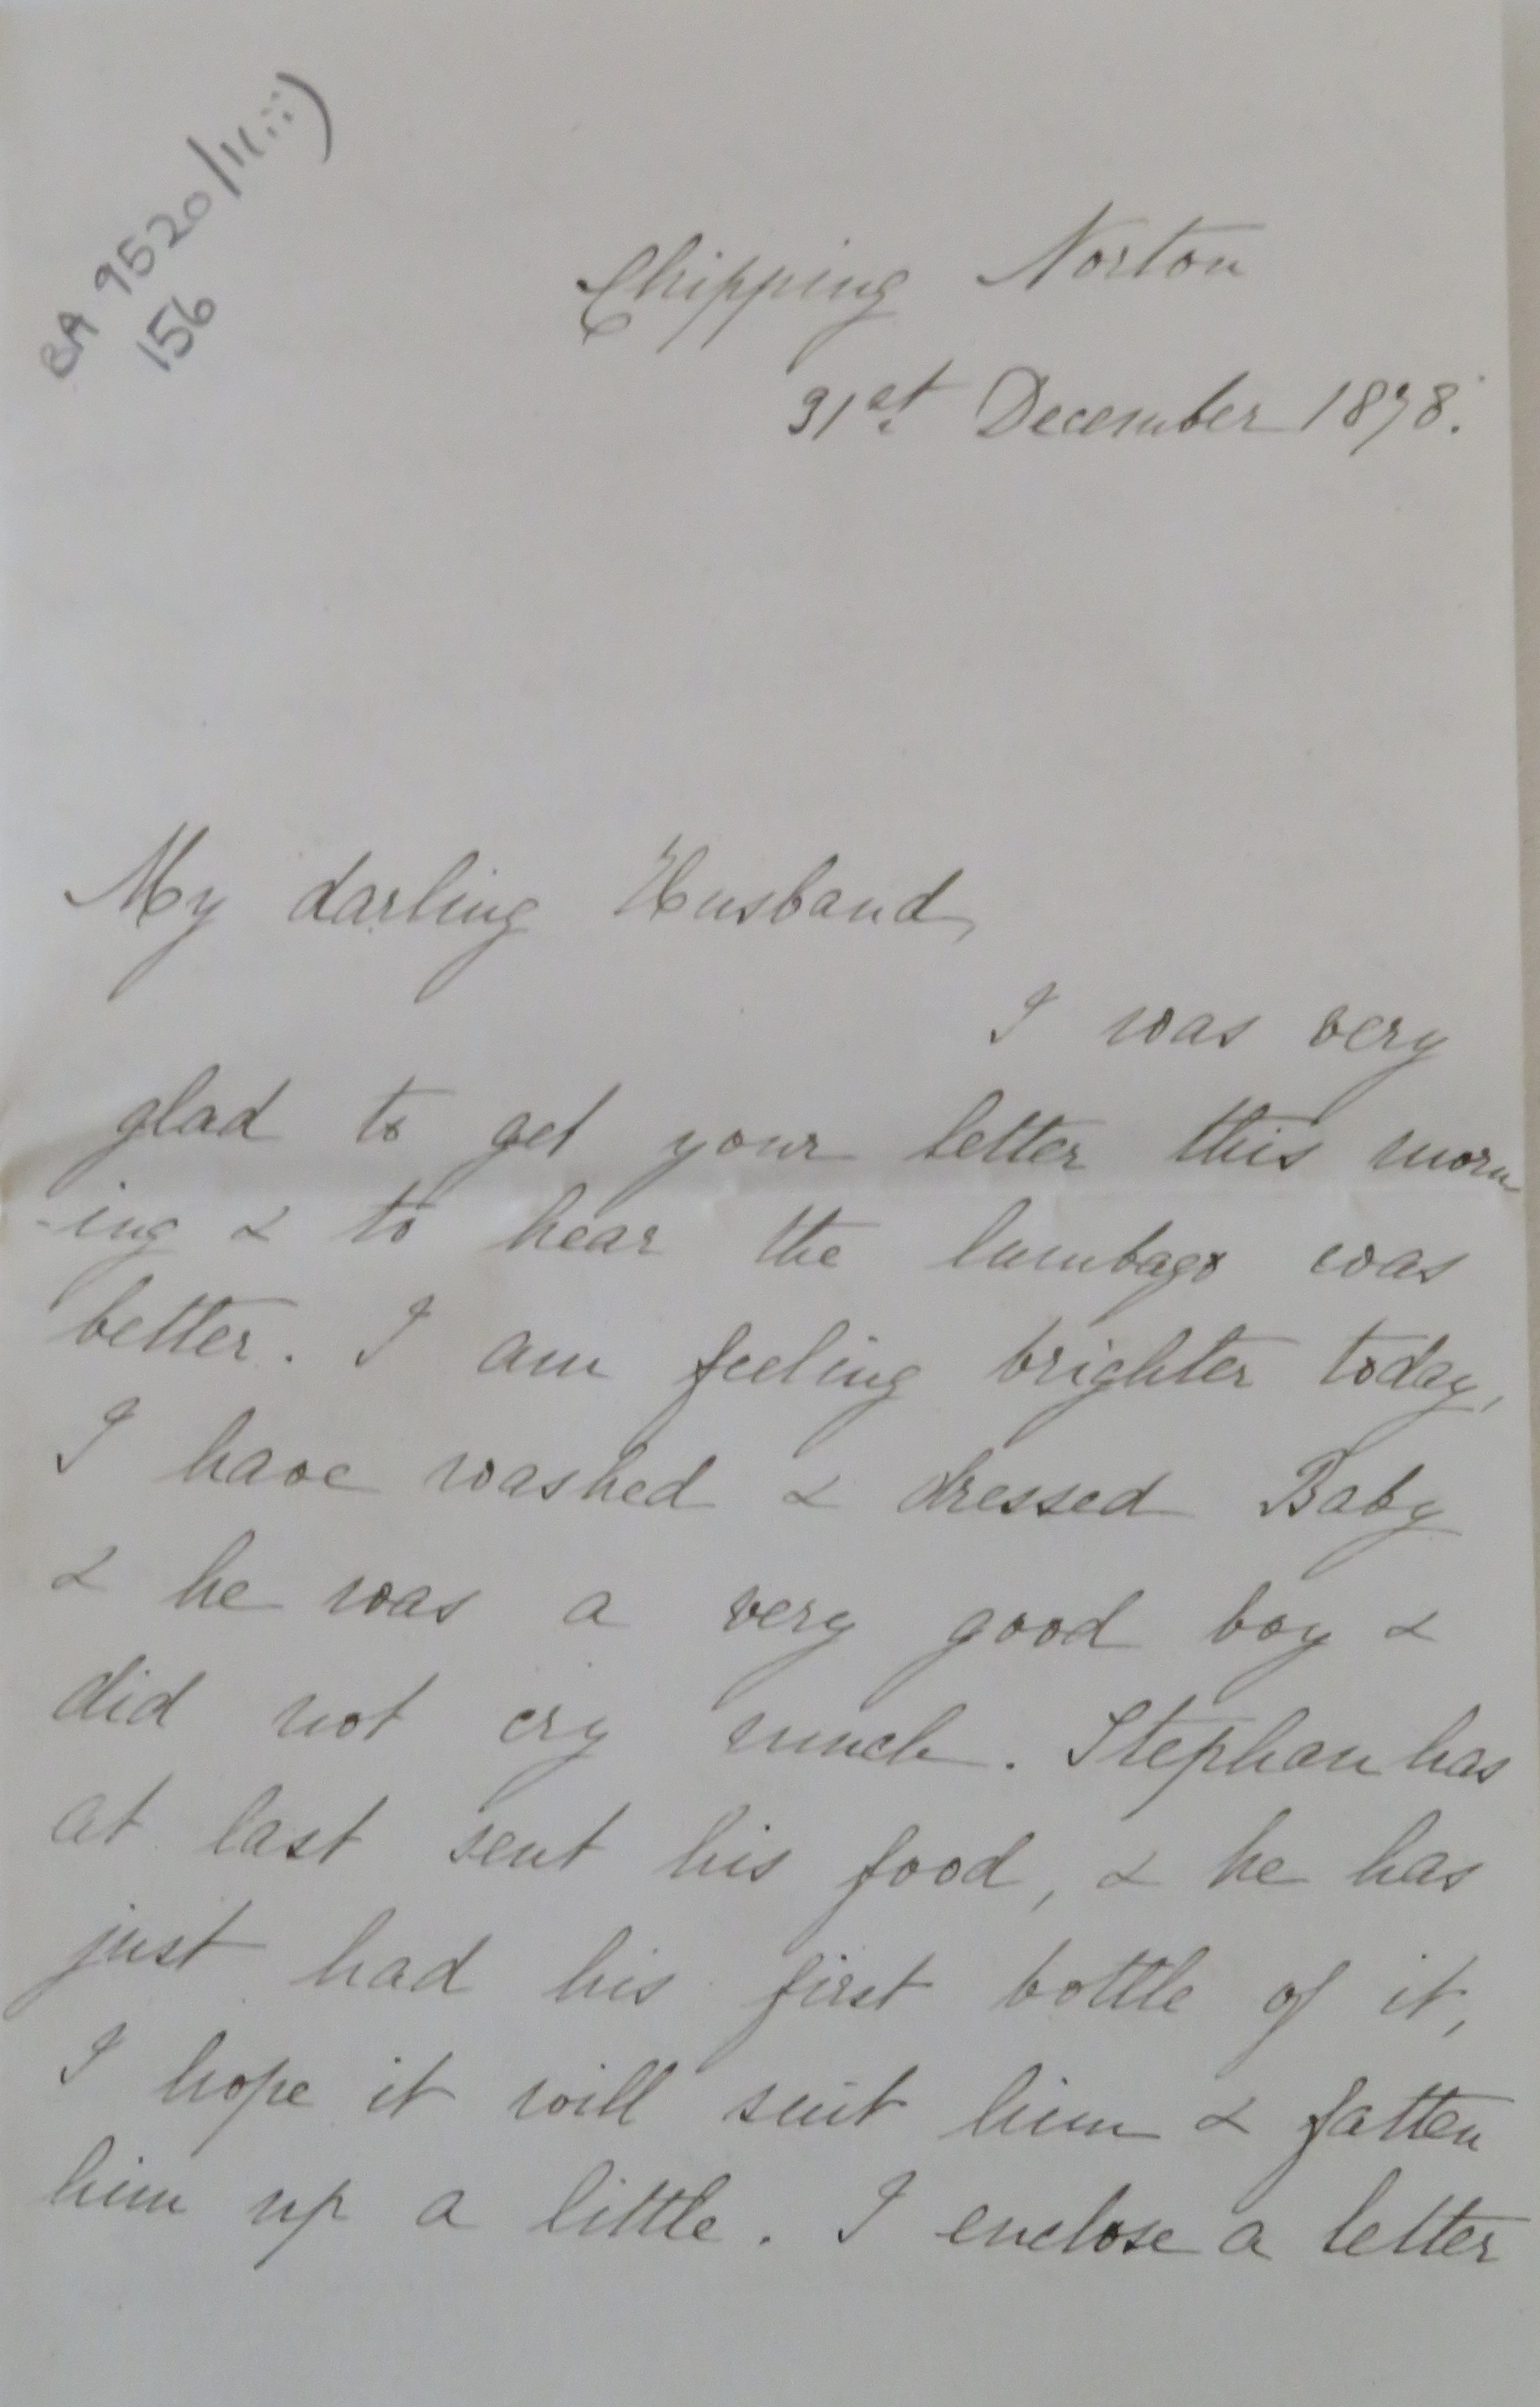 BA 9520/11(ii)
156
Chipping Norton
31st December 1898.
My darling Husband,
I was very
glad to get your letter this morn
-ing & to hear the lumbago was
better. I am feeling brighter today,
I have washed & dressed Baby
& he was a very good boy &
did not cry much. Stephan has
at last sent his food, & he has
just had his first bottle of it,
I hope it will suit him & fatten
him up a little. I enclose a letter